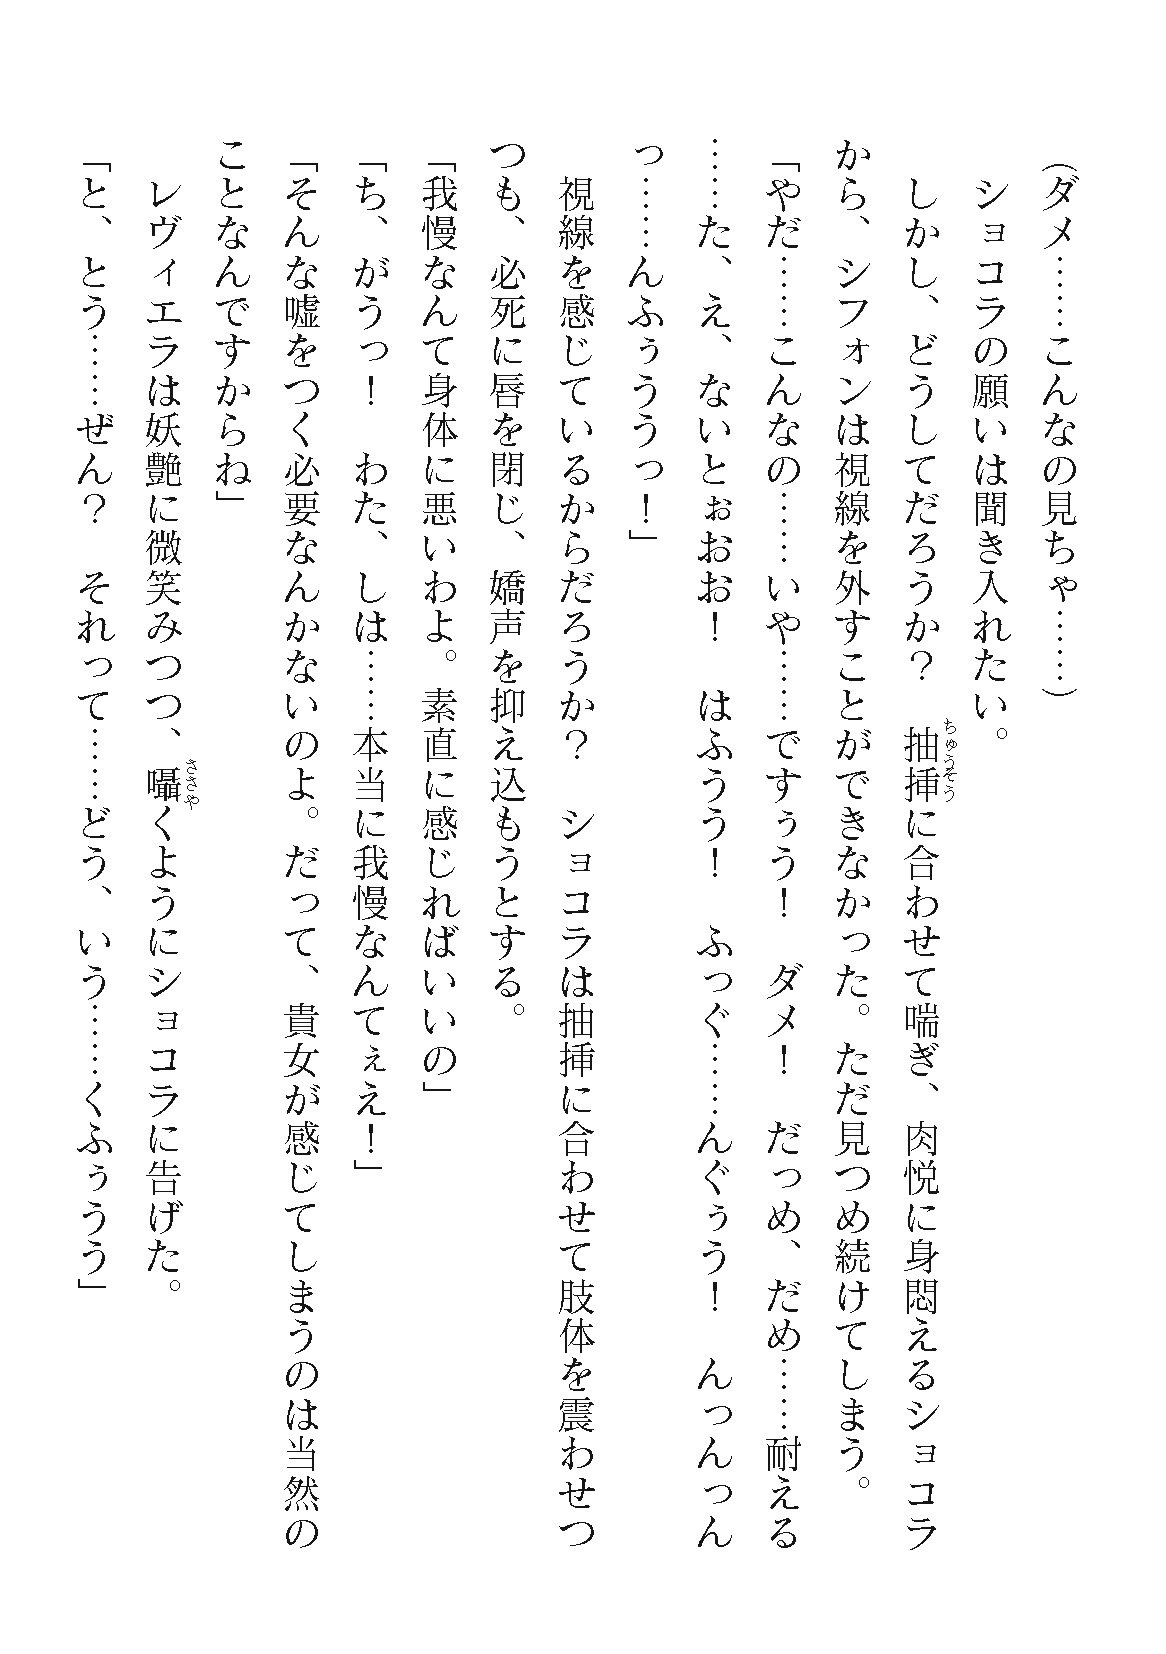 （ダメ……こんなの見ちゃ……）
　ショコラの願いは聞き入れたい。
　しかし、どうしてだろうか？　抽挿に合わせて喘ぎ、肉悦に身悶えるショコラ
から、シフォンは視線を外すことができなかった。ただ見つめ続けてしまう。
「やだ……こんなの……いや……ですぅう！　ダメ！　だっめ、だめ……耐える
……た、え、ないとぉおお！　はふうう！　ふっぐ……んぐぅう！　んっんっん
っ……んふぅううっ！」
　視線を感じているからだろうか？　ショコラは抽挿に合わせて肢体を震わせつ
つも、必死に唇を閉じ、嬌声を抑え込もうとする。
「我慢なんて身体に悪いわよ。素直に感じればいいの」
「ち、がうっ！　わた、しは……本当に我慢なんてぇえ！」
「そんな嘘をつく必要なんかないのよ。だって、貴女が感じてしまうのは当然の
ことなんですからね」
　レヴィエラは妖艶に微笑みつつ、囁くようにショコラに告げた。
「と、とう……ぜん？　それって……どう、いう……くふぅうう」
ちゅうそう
ささや